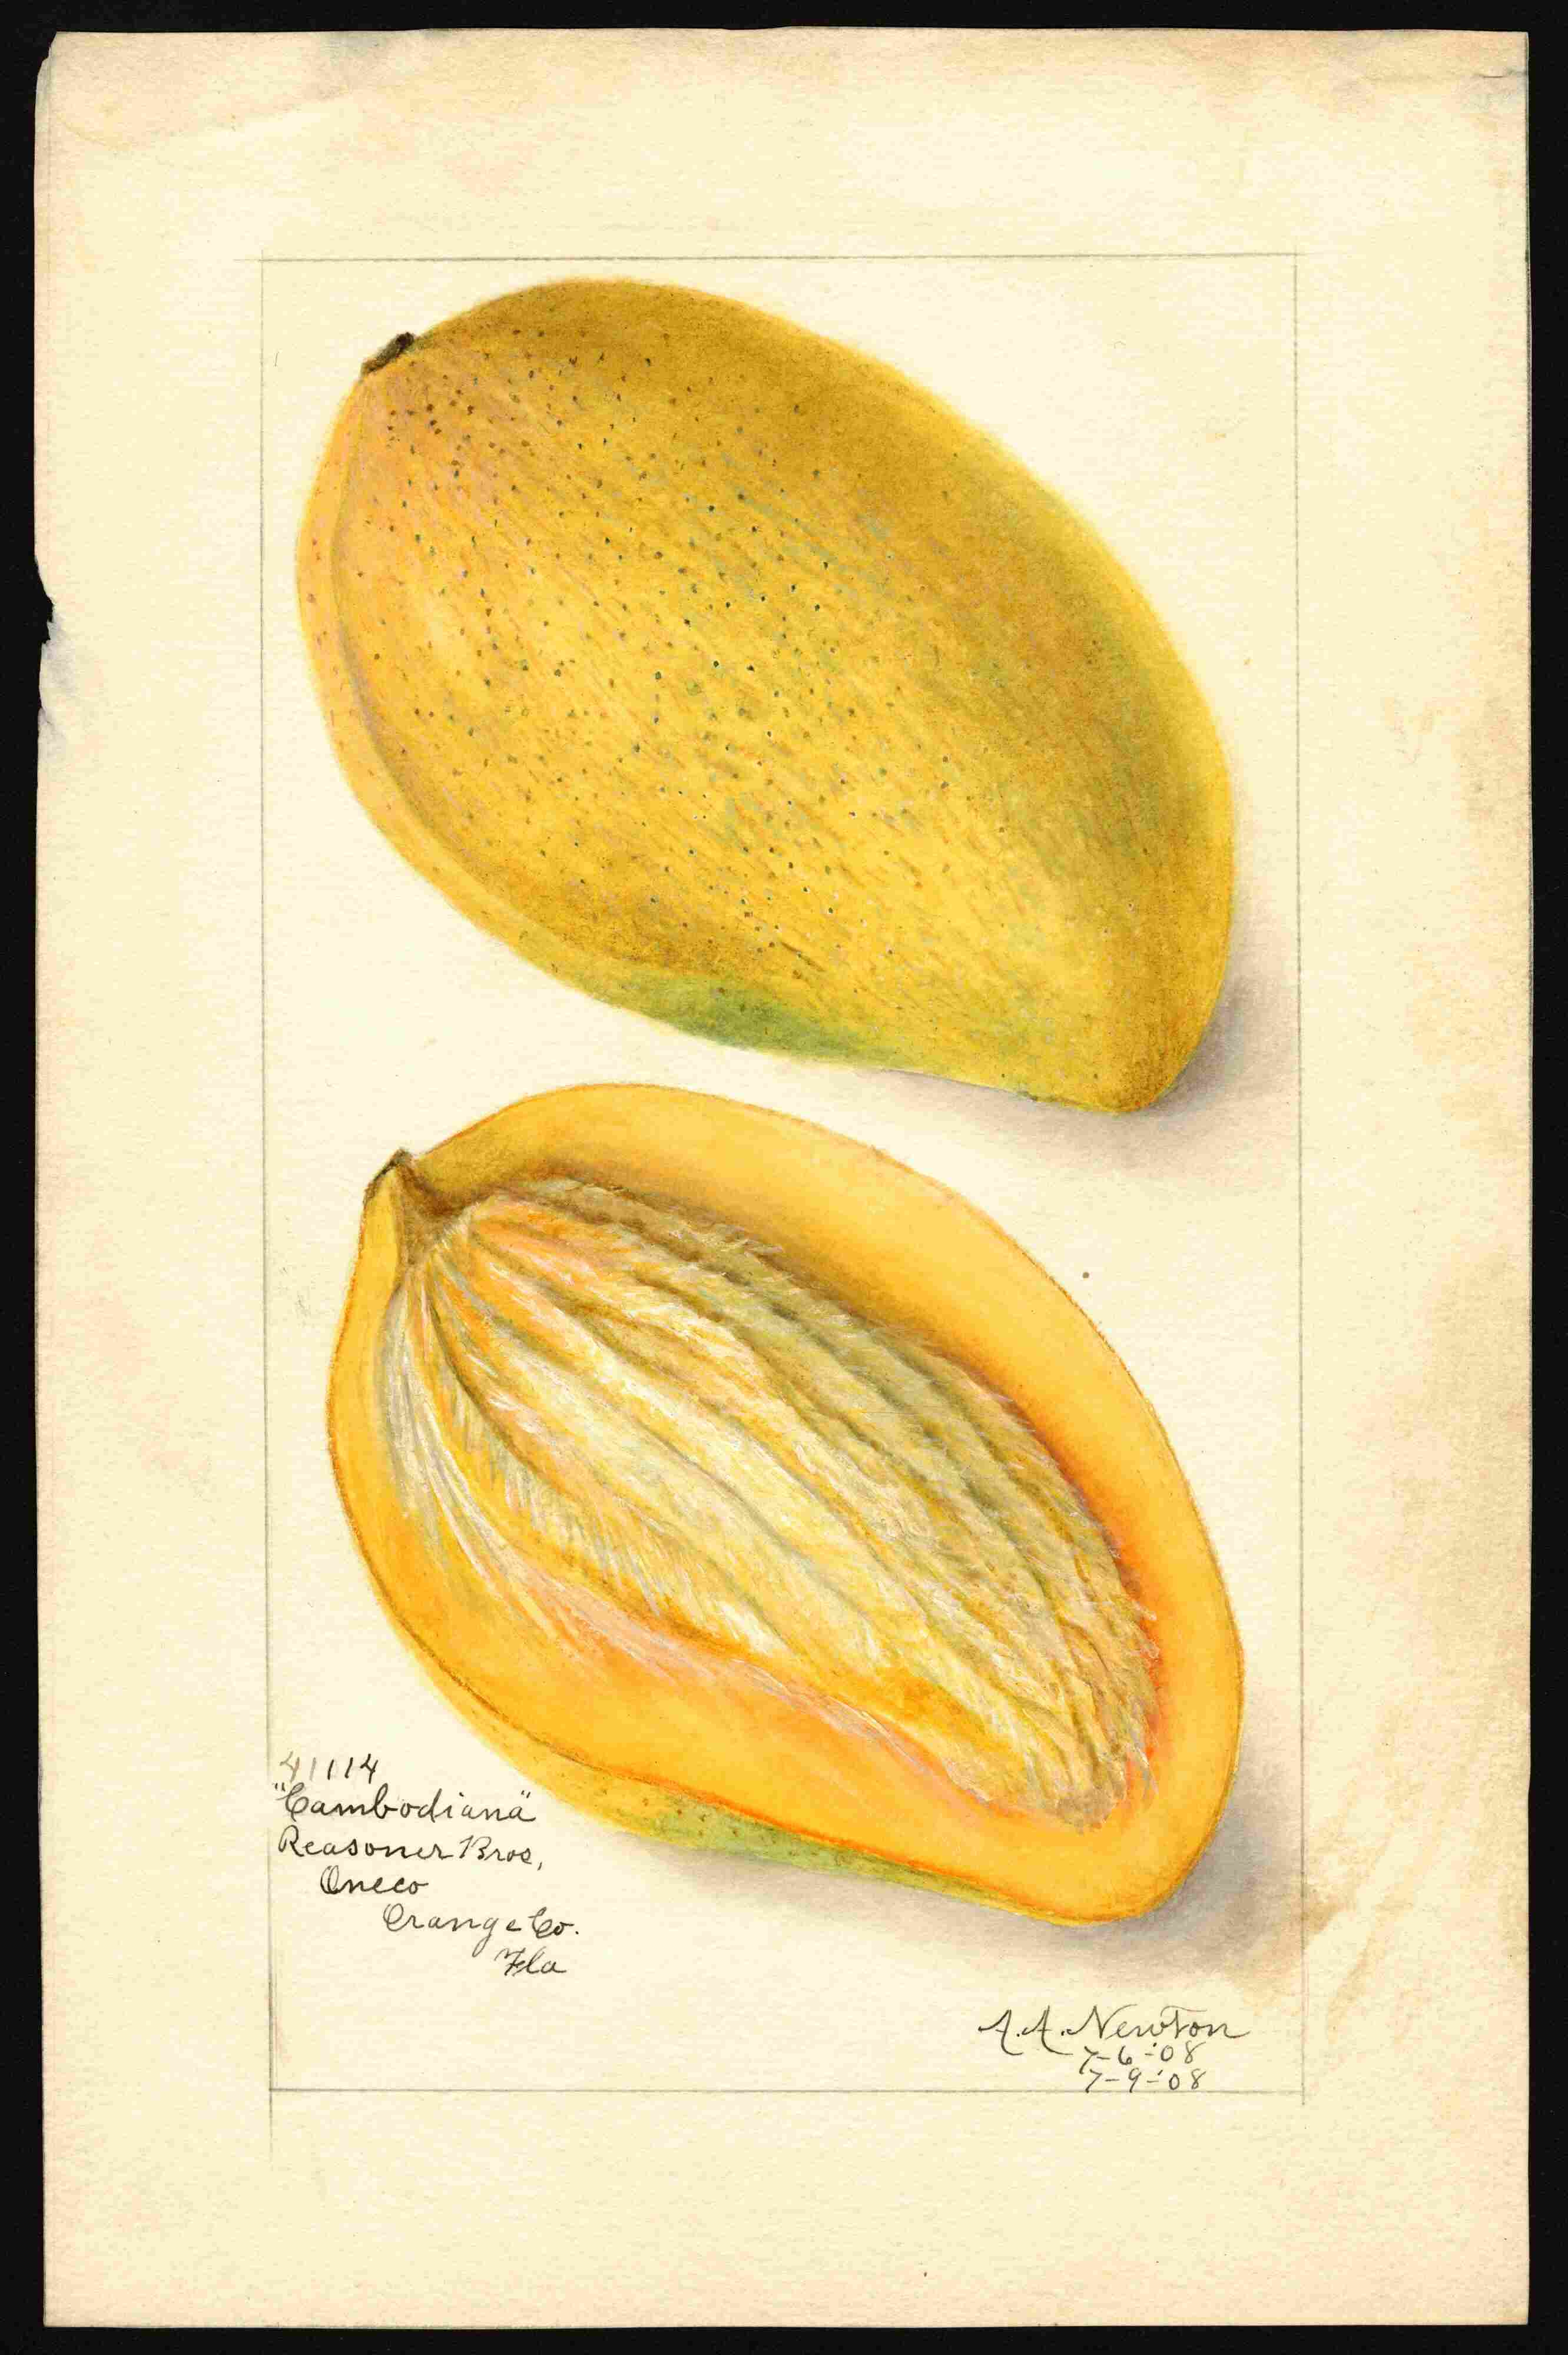 41114
"Cambodiana"
Reasoner Bros,
Oneco
Orange Co.
Fla
A.A. Newton
7-6-'08
7-9-'08